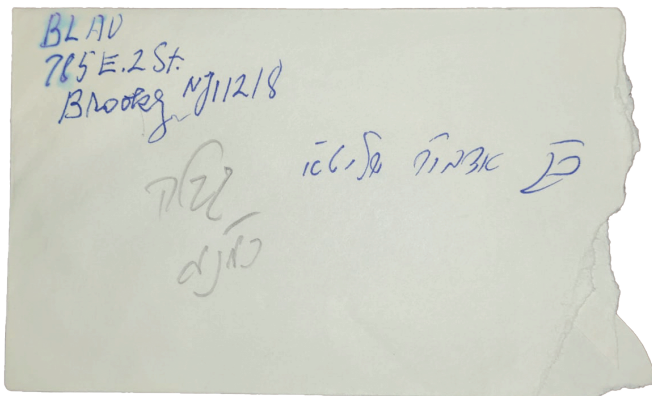 BLAU
785 E. 2 St.
Brooklyn NY 11218
כ"ק אדמו"ר שליט"א